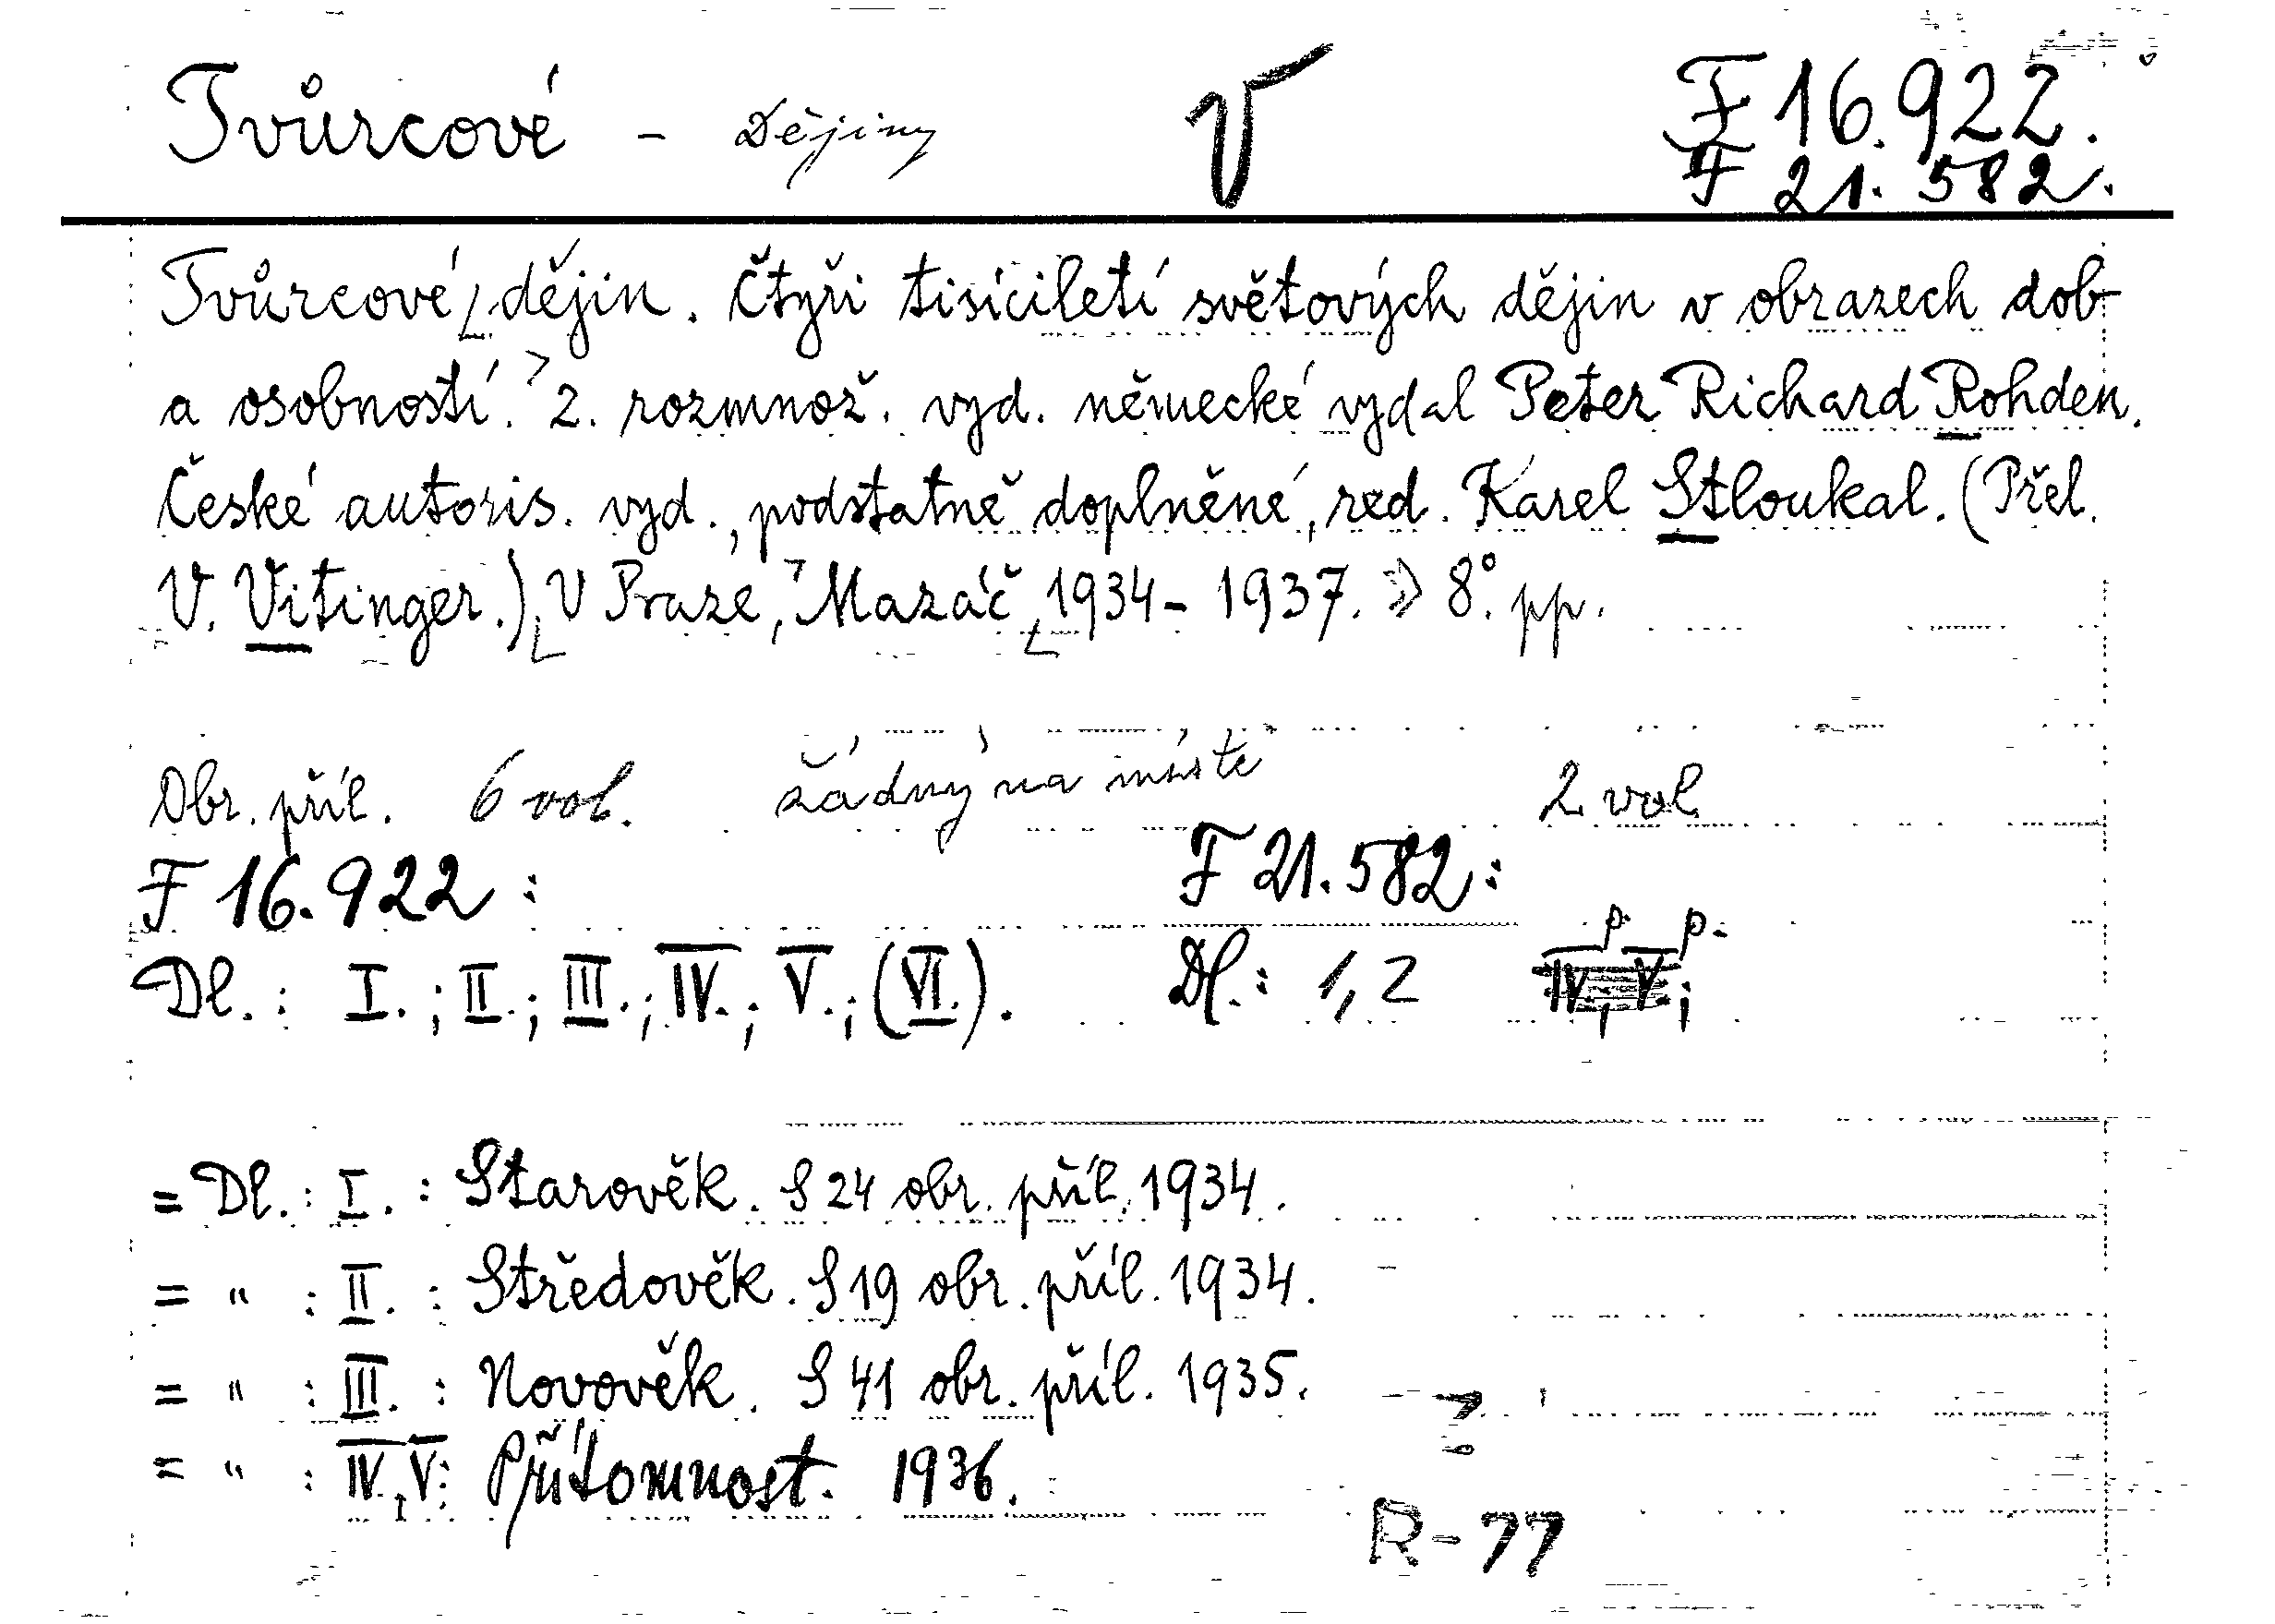 Tvůrcové - Dějiny V F 16.922.
F 21.582.
Tvůrcové dějin. Čtyři tisíciletí světových dějin v obrazech dob
a osobností. 2. rozmnož. vyd. německé vydal Peter Richard Rohden.
České autoris. vyd., podstatně doplněné, red. Karel Stloukal. (Přel.
V. Vitinger.) V Praze, Mazáč 1934-1937. 8°. pp.
Obr. příl. 6 vol. žádný na místě 2 vol
F 16.922: F 21.582:
Dl.: I.; II.; III.; IV.; V.; (VI.). Dl.: 1, 2 IV, p. V; p.
= Dl.: I.: Starověk. S 24 obr. příl. 1934.
= " : II.: Středověk. S 19 obr. příl. 1934.
= " : III.: Novověk. S 41 obr. příl. 1935.
= " : IV., V: Přítomnost. 1936.
R-77